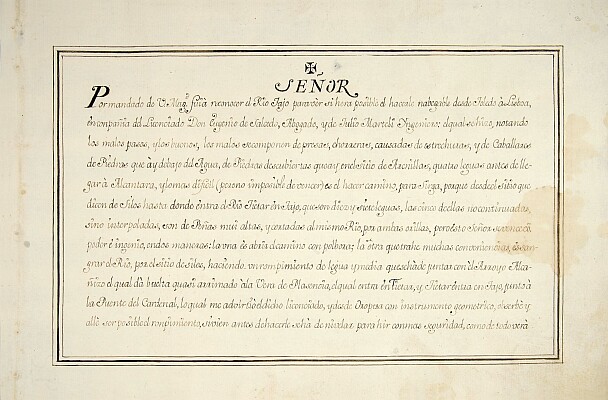 SEÑOR
Por mandado de V. Magᵈ. fui à reconocer el Rio Tajo para vèr si hera posible el hacerle nabegable desde Toledo à Lisboa,
en compañia del Licenciado Don Eugenio de Salcedo, Abogado, y de Julio Marteli Yngeniero; el qual se hizo, notando
los malos pasos, y los buenos, los malos se componen de presas, chorreras, causadas de estrechuras, y de Caballares
de Piedras que ay debajo del Agua, de Piedras descubiertas que ay en el sitio de Arenillas, quatro leguas antes de lle-
gar à Alcantara, y lo mas dificil (pero no imposible de vencer) es el hacer camino, para Sirga, porque desde el sitio que
dicen de Silos hasta donde entra el Rio Tietar en Tajo, que son diez y siete leguas, las cinco de ellas no continuadas,
sino interpoladas, son de Peñas mui altas, y cortadas al mismo Rio, por ambas orillas, y por esto Señor se reconoció
poder è ingenio, en dos maneras: la una és abrir el camino con polbora: la otra que trahe muchas conveniencias, és san-
grar el Rio, por el sitio de Silos, haciendo, un rompimiento de legua y media que se ha de juntar con el Arroyo Alca-
ñizo el qual dà buelta quasi arrimado à la Vera de Plasencia, el qual entra en Tietar, y Tietar entra en Tajo, junto à
la Puente del Cardenal, lo qual me advirtió el dicho licenciado, y desde Oropesa con instrumento geometrico, observè y
allè ser posible el rompimiento, si vien antes de hacerle se hà de nivelar para hir con mas seguridad, como de todo verà